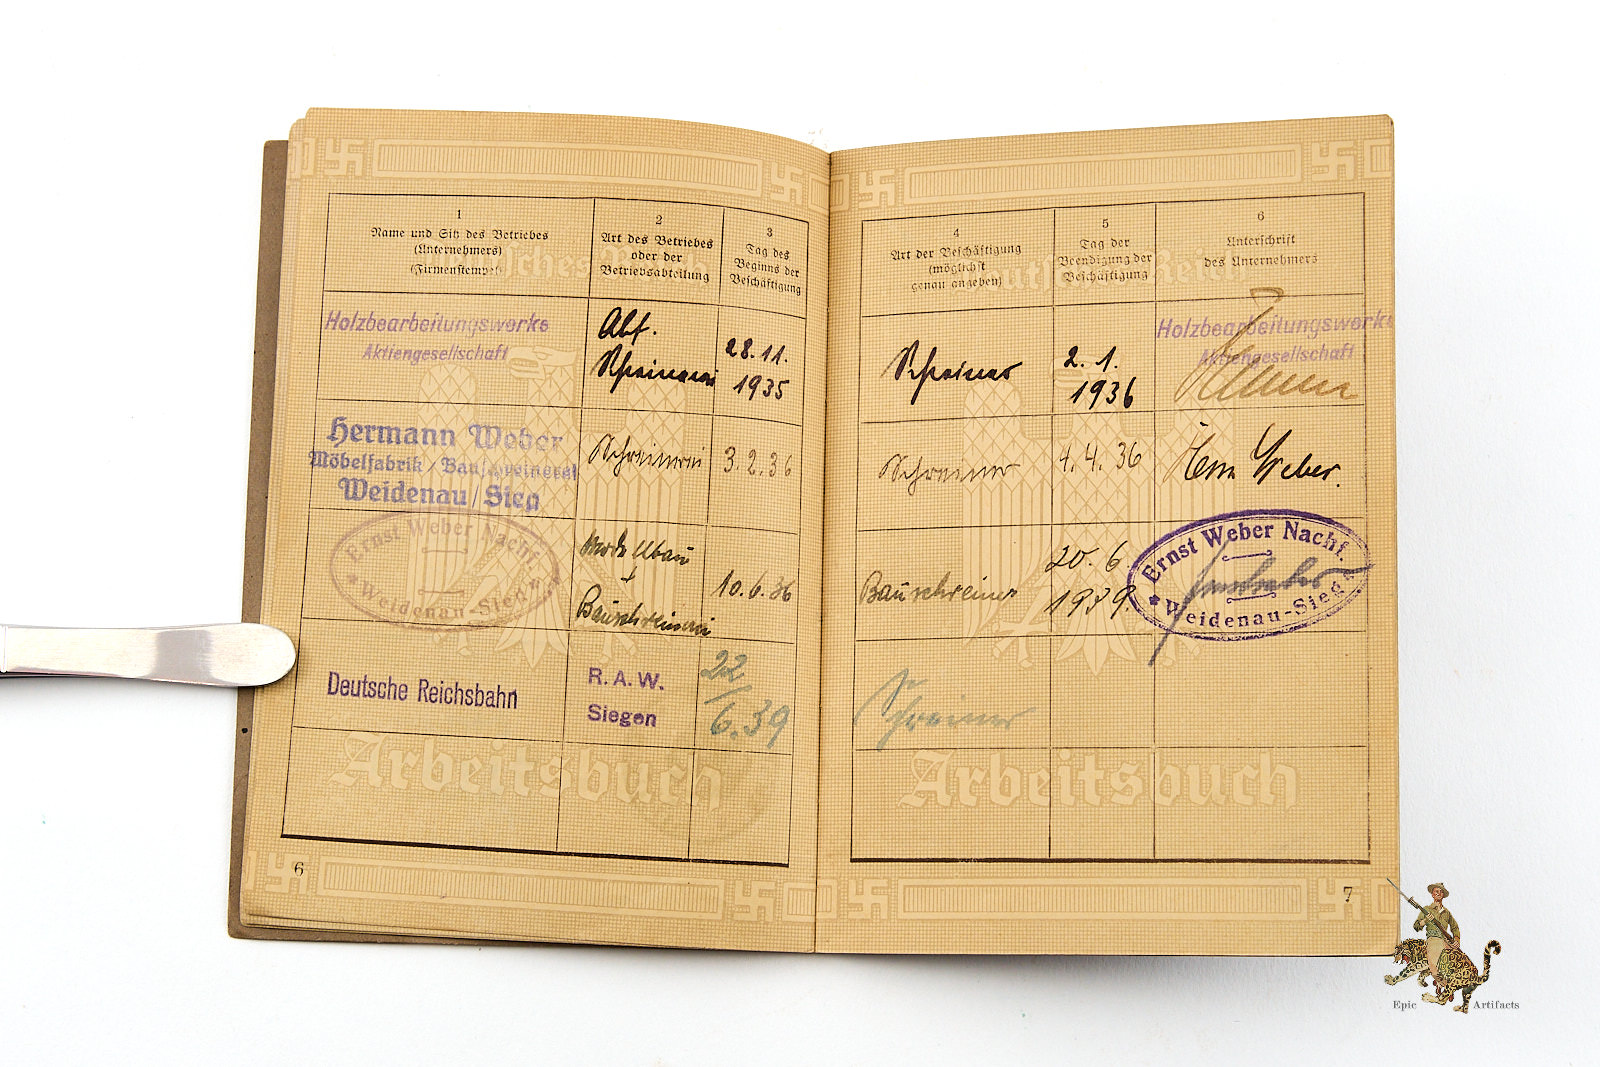 1
Name und Sitz des Betriebes
(Unternehmers)
(Firmenstempel)
2
Art des Betriebes
oder der
Betriebsabteilung
3
Tag des
Beginns der
Beschäftigung
Holzbearbeitungswerke
Aktiengesellschaft
Abt.
Schreinerei
28.11.
1935
Hermann Weber
Möbelfabrik / Bauschreinerei
Weidenau / Sieg
Schreinerei
3.2.36
Ernst Weber Nachf.
Weidenau-Sieg
Modellbau
+
Bauschreinerei
10.6.36
Deutsche Reichsbahn
R.A.W.
Siegen
22
6.39
Deutsches Reich
Arbeitsbuch
6
4
Art der Beschäftigung
(möglichst
genau angeben)
5
Tag der
Beendigung der
Beschäftigung
6
Unterschrift
des Unternehmers
Schreiner
2.1.
1936
Holzbearbeitungswerke
Aktiengesellschaft
Schreiner
4.4.36
Herm Weber.
Bauschreiner
20.6
1939.
Ernst Weber Nachf.
Weidenau-Sieg
Schreiner
Deutsches Reich
Arbeitsbuch
7
Epic Artifacts